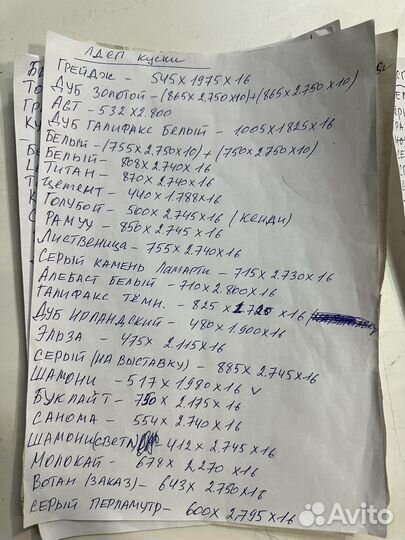 ЛДСП куски
ГРЕЙДЖ - 545 х 1975 х 16
ДУБ ЗОЛОТОЙ - (865 х 2.750 х 10) + (865 х 2.750 х 10)
АСТ - 532 х 2.800
ДУБ ГАЛИФАКС БЕЛЫЙ - 1005 х 1825 х 16
БЕЛЫЙ - (755 х 2.750 х 10) + (750 х 2.750 х 10)
БЕЛЫЙ - 808 х 2.740 х 16
ТИТАН - 870 х 2.740 х 16
ЦЕМЕНТ - 440 х 1.788 х 16
ГОЛУБОЙ - 500 х 2.745 х 16 (КЕЙДИ)
РАМУХ - 850 х 2.745 х 16
ЛИСТВЕНИЦА - 755 х 2.740 х 16
СЕРЫЙ КАМЕНЬ ЛАМАРТИ - 715 х 2.730 х 16
АЛЕБАСТ БЕЛЫЙ - 710 х 2.800 х 16
ГАЛИФАКС ТЁМН. - 825 х 2.720 х 16
ДУБ ИРЛАНДСКИЙ - 480 х 1.900 х 16
ЭЛЬЗА - 475 х 2.115 х 16
СЕРЫЙ (НА ВЫСТАВКУ) - 885 х 2.745 х 16
ШАМОНИ - 517 х 1980 х 16 v
БУКЛАЙТ - 750 х 2.175 х 16
САНОМА - 554 х 2.740 х 16
ШАМОНИ (СВЕТЛ) - 412 х 2.745 х 16
МОЛОКАЙ - 678 х 2.270 х 16
ВОТАН (ЗАКАЗ) - 643 х 2.750 х 18
СЕРЫЙ ПЕРЛАМУТР - 600 х 2.795 х 16
Avito